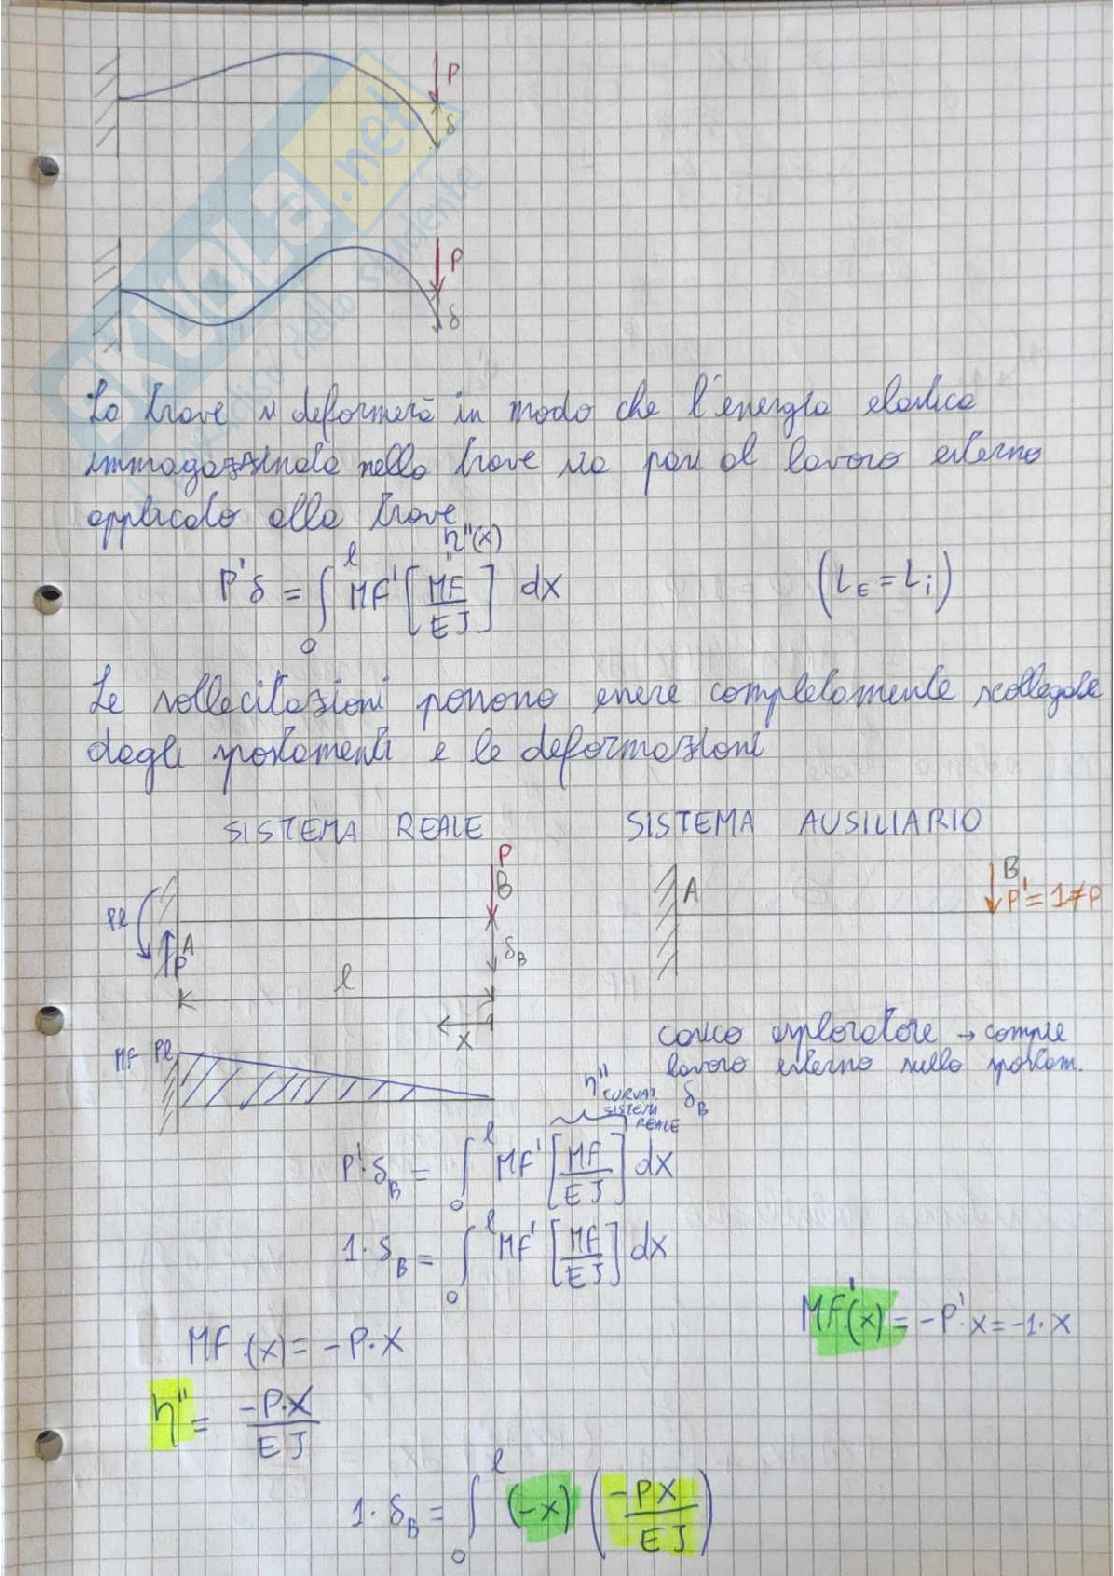 P
δ
P
δ
SKUOLA.net
La trave si deformerà in modo che l'energia elastica
immagazzinata nella trave sia pari al lavoro esterno
applicato alla trave
η"(x)
P'δ = ∫₀ˡ MF' [MF/EJ] dx (L_E = L_i)
Le sollecitazioni possono essere completamente scollegate
dagli spostamenti e le deformazioni
SISTEMA REALE SISTEMA AUSILIARIO
P
B B
Pl A P'=1≠P
A
P δ_B
l
x
carico esploratore → compie
MF Pl lavoro esterno sullo spostam.
η" δ_B
CURVAT.
SISTEMA
REALE
P'·δ_B = ∫₀ˡ MF' [MF/EJ] dx
1·δ_B = ∫₀ˡ MF' [MF/EJ] dx
MF'(x) = -P'·x = -1·x
MF (x) = -P·x
η" = -P·x/EJ
1·δ_B = ∫₀ˡ (-x) (-Px/EJ)